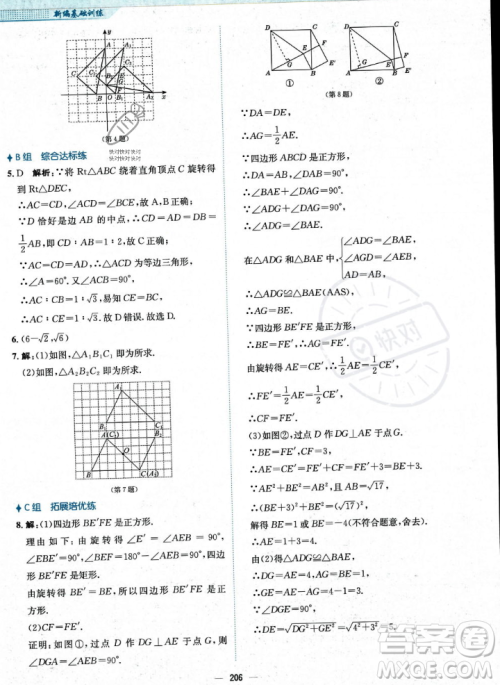 新编基础训练
(第4题)
B组 综合达标练
5. D 解析:∵将Rt△ABC绕着直角顶点C旋转得
到Rt△DEC,
∴AC=CD,∴A正确.
∵D恰好为AB的中点,∴CD=
1/2 AB,即CD∶AB=1∶2,∴D错误.
∴AC=CD=AD,∴△ADC为等边三角形,
∴∠A=60°.
∴AC∶BC=1∶√3,∴C正确.
6. (6-√2,√6)
7. 解:(1)如图,△A₁B₁C₁即为所求.
(2)如图,
即为所求.
(第7题)
C组 拓展培优练
8. 解:(1)四边形BE′FE是正方形.
理由如下:由旋转得∠E′=∠AEB=90°,
∠EBE′=90°,∠BEF=180°-∠AEB=90°,
∴四边形BE′FE是矩形.
∵BE′=BE,∴四边形BE′FE是正方形.
(2)CF=FE′.
证明:如图①,过点D作DG⊥AE于点G,则
∠DGA=∠AEB=90°.
① ②
(第8题)
∵DA=DE,
∴AG=1/2 AE.
∵四边形ABCD是正方形,
∴DA=AB,∠DAB=90°.
∴∠BAE+∠DAG=90°.
∵∠ADG+∠DAG=90°,
∴∠ADG=∠BAE.
在△ADG和△BAE中,
∠ADG=∠BAE,
∠DGA=∠AEB,
DA=AB,
∴△ADG≌△BAE(AAS).
∴AG=BE.
∵四边形BE′FE是正方形,
∴BE=FE′.
∴AG=FE′.
由旋转得AE=CE′,
∴FE′=1/2 AE=1/2 CE′.
∴CF=FE′.
(3)如图②,过点D作DG⊥AE于点G.
∵BE=FE′,CF=3,
AB=√17,
∴AE²+BE²=AB²=17.
∴(BE+3)²+BE²=(√17)².
解得BE=1或BE=-4(不符合题意,舍去).
∴AE=1+3=4.
由(2)得△ADG≌△BAE,
∴DG=AE=4,AG=BE=1.
∴GE=AE-AG=4-1=3.
∵∠DGE=90°,
∴DE=√DG²+GE²=√4²+3²=5.
206
快对
答案圈
MXQE.COM